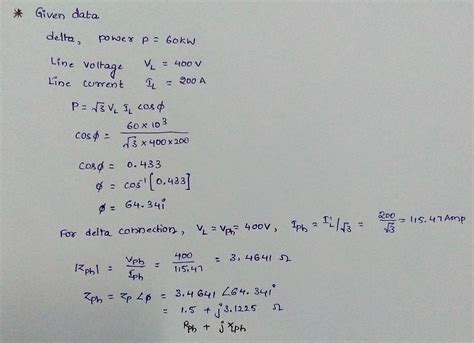 * Given data
delta, power P = 60kW
Line voltage V_L = 400V
Line current I_L = 200A
P = √3 V_L I_L cosϕ
cosϕ = 60×10³ / √3 × 400×200
cosϕ = 0.433
ϕ = cos⁻¹[0.433]
ϕ = 64.34°
For delta connection, V_L = V_ph = 400V, I_ph = I_L/√3 = 200/√3 = 115.47 Amp
|Z_ph| = V_ph/I_ph = 400/115.47 = 3.4641 Ω
Z_ph = Z_P ∠ϕ = 3.4641 ∠64.341°
= 1.5 + j3.1225 Ω
R_ph + j X_ph